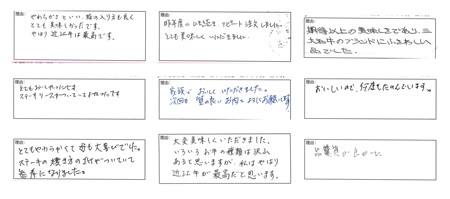 理由:
やわらかさといい、脂の入り方も良く
とても美味しかったです。
やはり近江牛は最高です。
理由:
昨年度のひき続き、リピート注文しました。
とても美味しくいただきました。
理由:
期待以上の美味しさであり、三
大和牛のブランドにふさわしい
品でした。
理由:
とてもおいしかったです
ステーキソースがついていてよかったです
理由:
家族で おいしくいただきました。
次回も 質の良いお肉を よろしくお願いします
理由:
おいしいので、何度もたのんでいます。
理由:
とてもやわらかくて 母も大喜びでした。
ステーキの焼き方の紙がついていて
参考になりました。
理由:
大変美味しくいただきました。
いろいろお牛の種類は沢山
あると思いますが、私はやはり
近江牛が最高だと思います。
理由:
品質が良かった